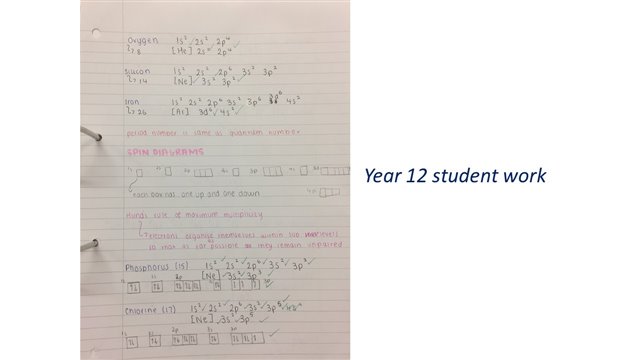 Oxygen 1s² 2s² 2p⁴
↳ 8 [He] 2s² 2p⁴
Silicon 1s² 2s² 2p⁶ 3s² 3p²
↳ 14 [Ne] 3s² 3p²
Iron 1s² 2s² 2p⁶ 3s² 3p⁶ 4s²
↳ 26 [Ar] 3d⁶ 4s²
period number is same as quantum number
SPIN DIAGRAMS
1s 2s 2p 3s 3p 4s 3d
4p
↳ each box has one up and one down
Hunds rule of maximum multiplicity
↳ electrons organise themselves within sub levels
so that as far as possible they remain unpaired
Phosphorus (15) 1s² 2s² 2p⁶ 3s² 3p³
[Ne] 3s² 3p³
1s 2s 2p 3s 3p
Chlorine (17) 1s² 2s² 2p⁶ 3s² 3p⁵
[Ne] 3s² 3p⁵
1s 2s 2p 3s 3p
Year 12 student work